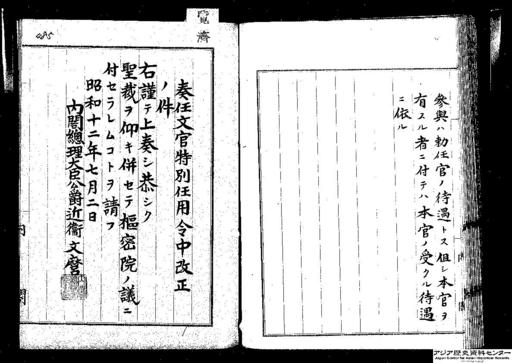 参與ハ勅任官ノ待遇トス但シ本官ヲ
有スル者ニ付テハ本官ノ受クル待遇
ニ依ル
覧済
奏任文官特別任用令中改正
ノ件
右謹テ上奏シ恭シク
聖裁ヲ仰キ併セテ樞密院ノ議ニ
付セラレムコトヲ請フ
昭和十二年七月二日
內閣總理大臣公爵近衞文麿
內閣
アジア歴史資料センター
Japan Center for Asian Historical Records